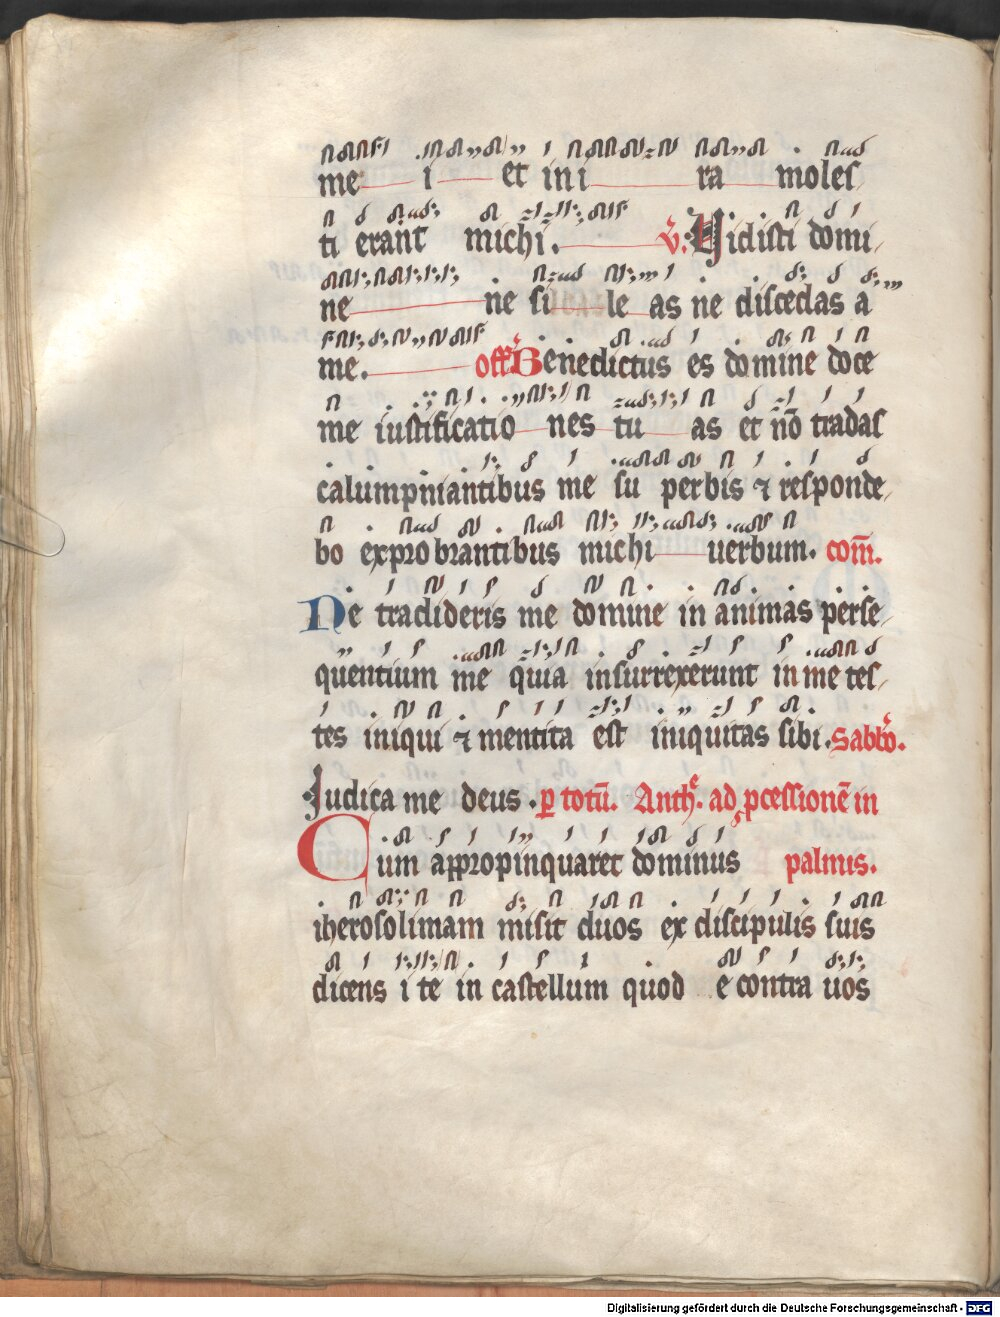 me i et in i ra moles-
ti erant michi. V. Vidisti domi-
ne ne si le as ne discedas a
me. off. Benedictus es domine doce
me iustificatio nes tu as et nō tradas
calumpniantibus me su perbis ⁊ responde-
bo exprobrantibus michi uerbum. com̄.
Ne tradideris me domine in animas perse-
quentium me quia insurrexerunt in me tes-
tes iniqui ⁊ mentita est iniquitas sibi. Sabbo.
Iudica me deus. ꝑ totū. Anthe. ad ꝓcessionē in
Cum appropinquaret dominus palmis.
iherosolimam misit duos ex discipulis suis
dicens i te in castellum quod e contra uos
Digitalisierung gefördert durch die Deutsche Forschungsgemeinschaft - DFG